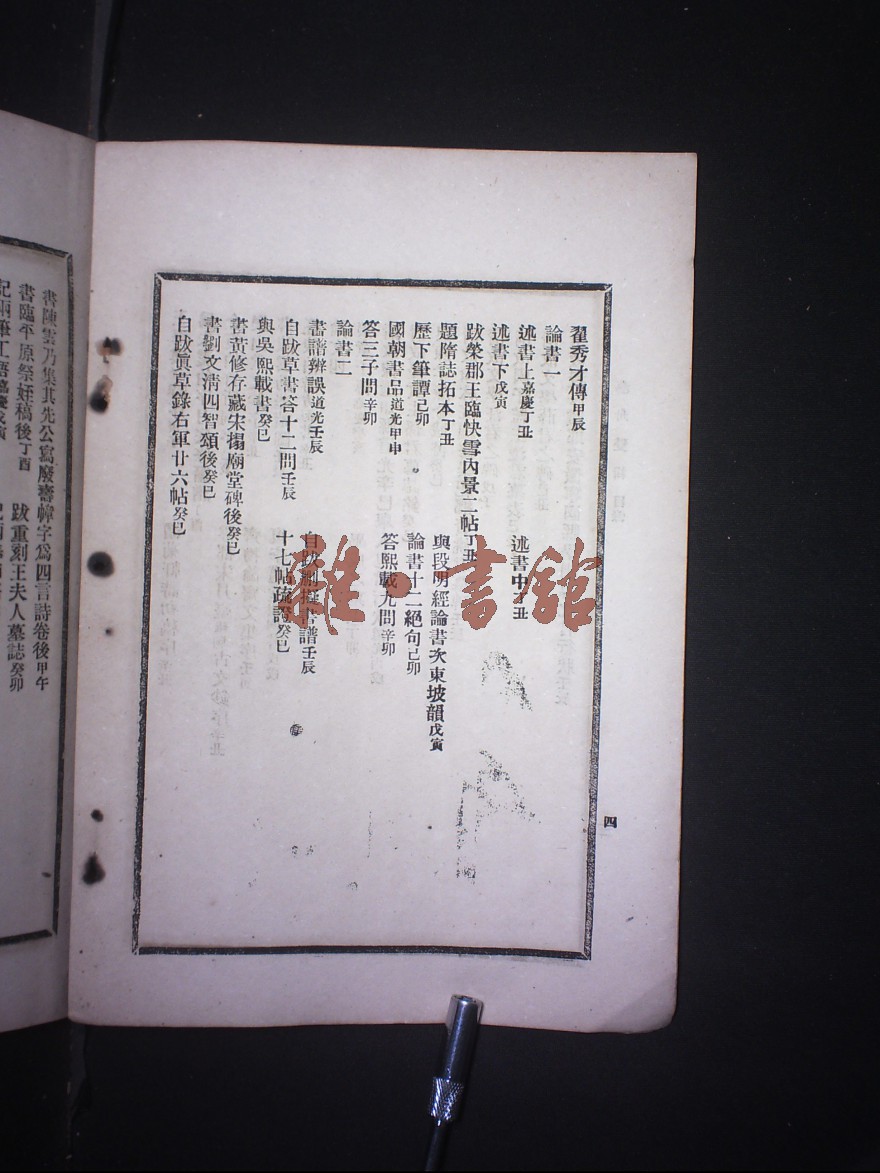 翟秀才傳甲辰
論書一
述書上嘉慶丁丑 述書中丁丑
述書下戊寅
跋榮郡王臨快雪內景二帖丁丑
題隋誌拓本丁丑 與段明經論書次東坡韻戊寅
歷下筆譚己卯 論書十二絕句己卯
國朝書品道光甲申
答三子問辛卯 答熙載九問辛卯
論書二
書譜辨誤道光壬辰 自跋刪擬書譜壬辰
自跋草書答十二問壬辰 十七帖疏證癸巳
與吳熙載書癸巳
書黃修存藏宋搨廟堂碑後癸巳
書劉文清四智頌後癸巳
自跋眞草錄右軍廿六帖癸巳
四
書陳雲乃集其先公寫廢壽幛字爲四言詩卷後甲午
書臨平原祭姪稿後丁酉 跋重刻王夫人墓誌癸卯
雜·書館